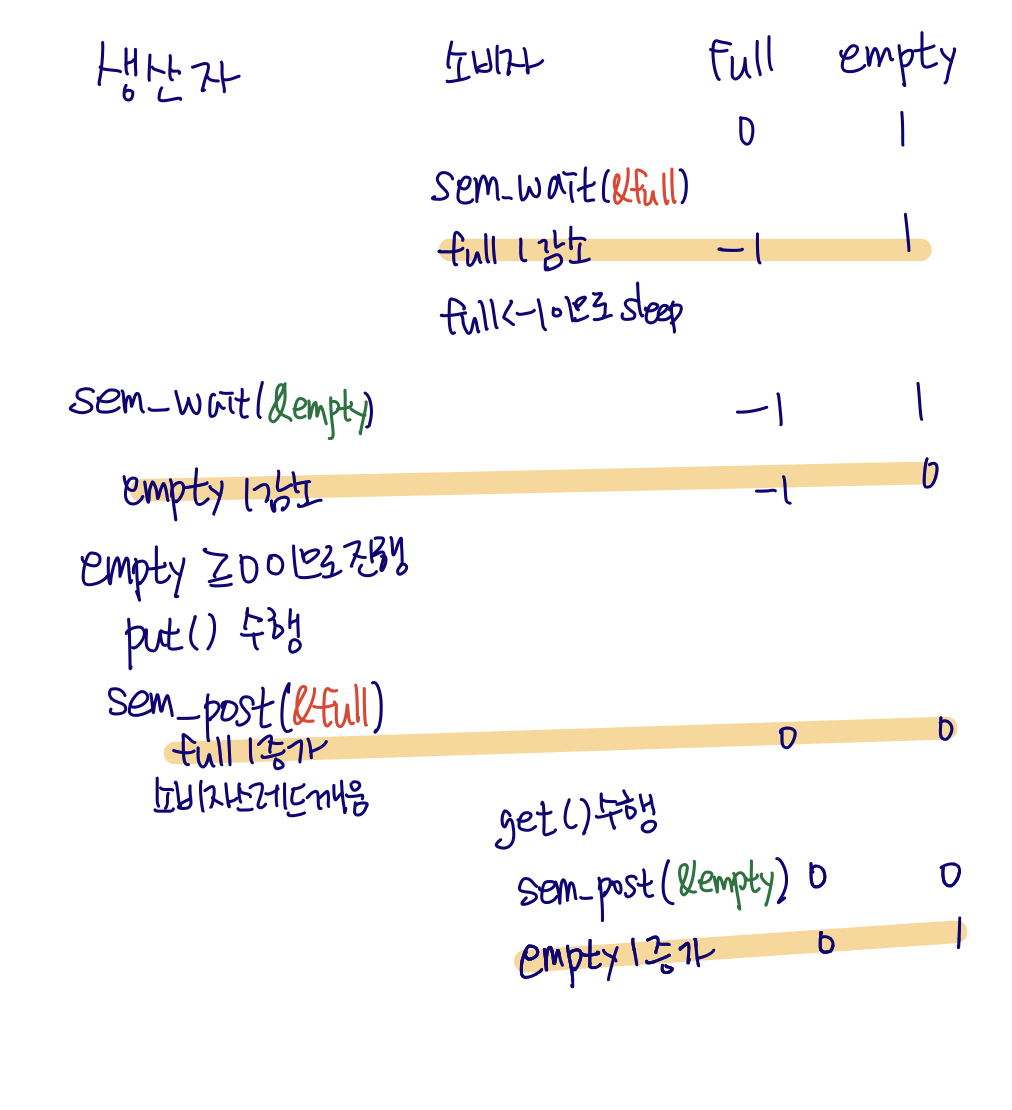 생산자 소비자 full empty
0 1
sem_wait(&full)
full 1 감소 -1 1
full<-1이므로 sleep
sem_wait(&empty) -1 1
empty 1감소 -1 0
empty ≥0이므로진행
put() 수행
sem_post(&full)
full 1증가 0 0
소비자스레드깨움
get()수행
sem_post(&empty) 0 0
empty 1증가 0 1